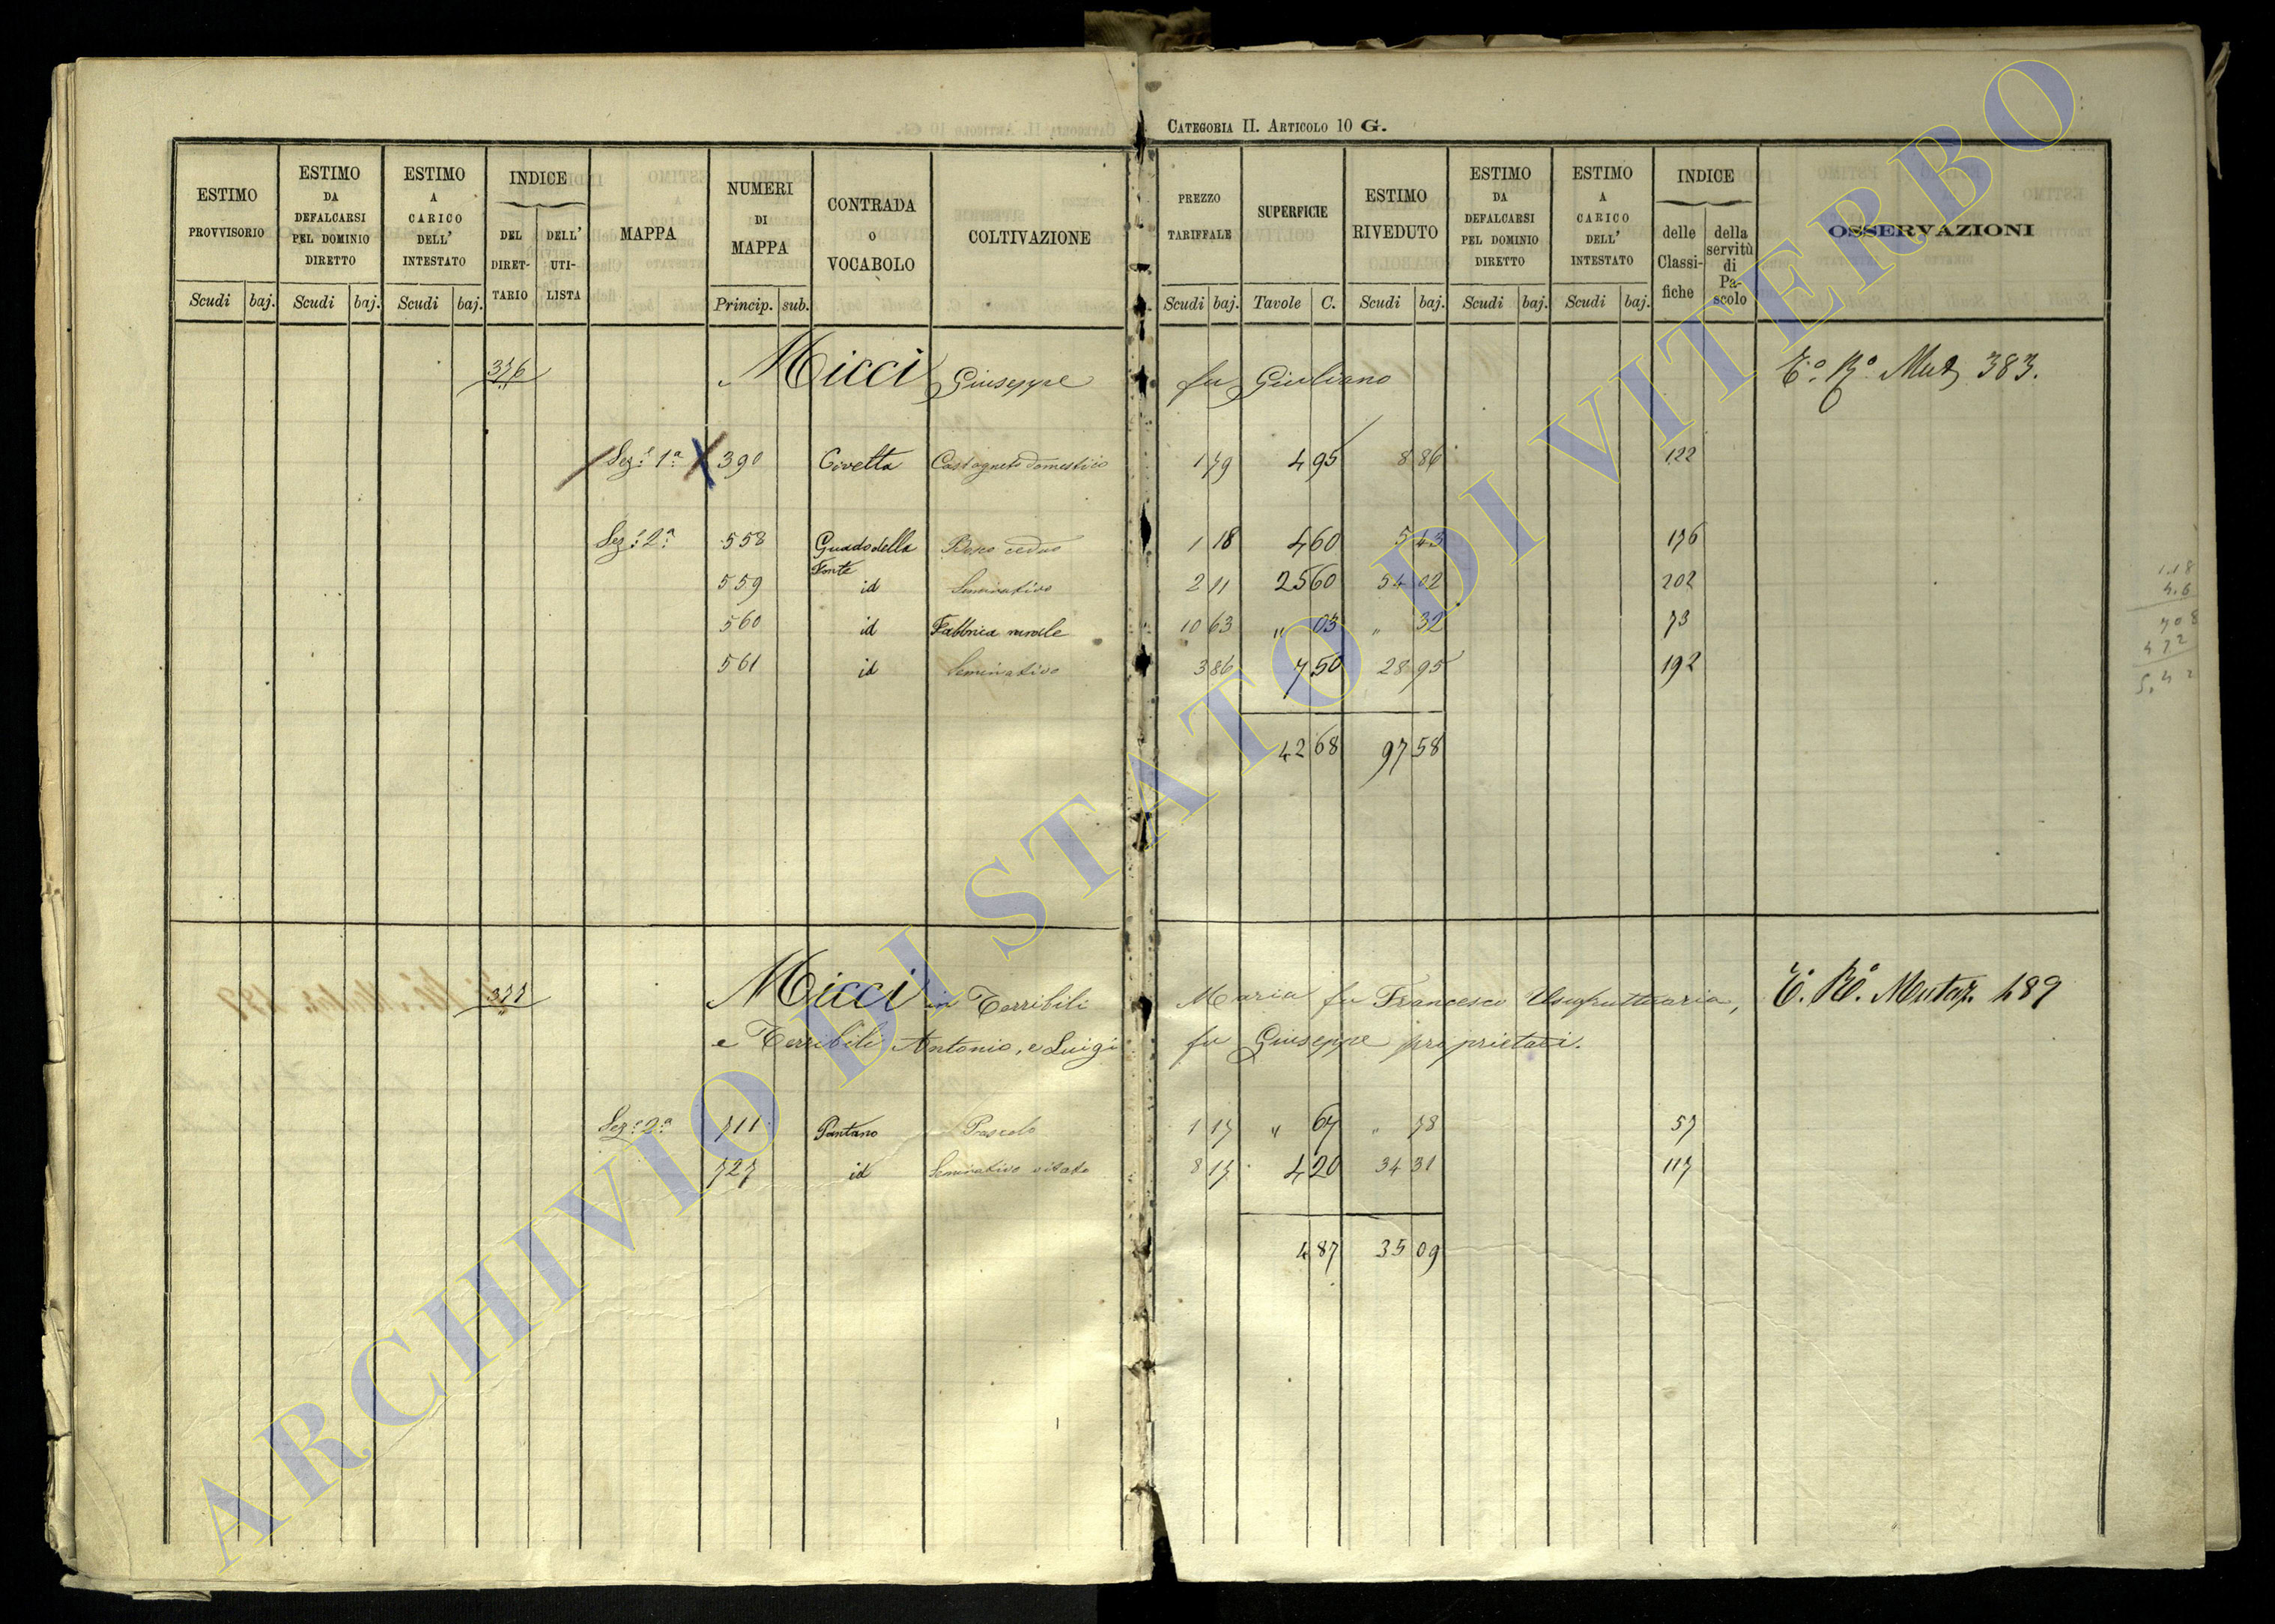 CATEGORIA II. ARTICOLO 10 G.
ESTIMO PROVVISORIO
ESTIMO DA DEFALCARSI PEL DOMINIO DIRETTO
ESTIMO A CARICO DELL' INTESTATO
INDICE
DEL DIRET-TARIO
DELL' UTI-LISTA
MAPPA
NUMERI DI MAPPA
CONTRADA O VOCABOLO
COLTIVAZIONE
PREZZO TARIFFALE
SUPERFICIE
ESTIMO RIVEDUTO
ESTIMO DA DEFALCARSI PEL DOMINIO DIRETTO
ESTIMO A CARICO DELL' INTESTATO
INDICE
delle Classi-fiche
della servitù di Pa-scolo
OSSERVAZIONI
Scudi baj. Scudi baj. Scudi baj. Princip. sub. Scudi baj. Tavole C. Scudi baj. Scudi baj. Scudi baj.
376 Micci Giuseppe fu Giuliano E.º R.º Mut 383.
Sez.e 1.a X 390 Civetta Castagneto domestico 1 79 4 95 8 86 122
Sez.e 2.a 558 Guado della Fonte Bosco ceduo 1 18 4 60 5 43 176
559 id Seminativo 2 11 25 60 54 02 202
560 id Fabbrica rurale 10 63 " 03 " 32 73
561 id Seminativo 3 86 7 50 28 95 192
42 68 97 58
1.18
4.6
708
472
5,42
377 Micci in Terribili Maria fu Francesco Usufruttuaria, E. R.º Mutaz. 489
e Terribili Antonio, e Luigi fu Giuseppe proprietari.
Sez.e 2.a 711 Pantano Pascolo 1 17 " 67 " 78 57
727 id Seminativo vitato 8 17 4 20 34 31 117
4 87 35 09
ARCHIVIO DI STATO DI VITERBO